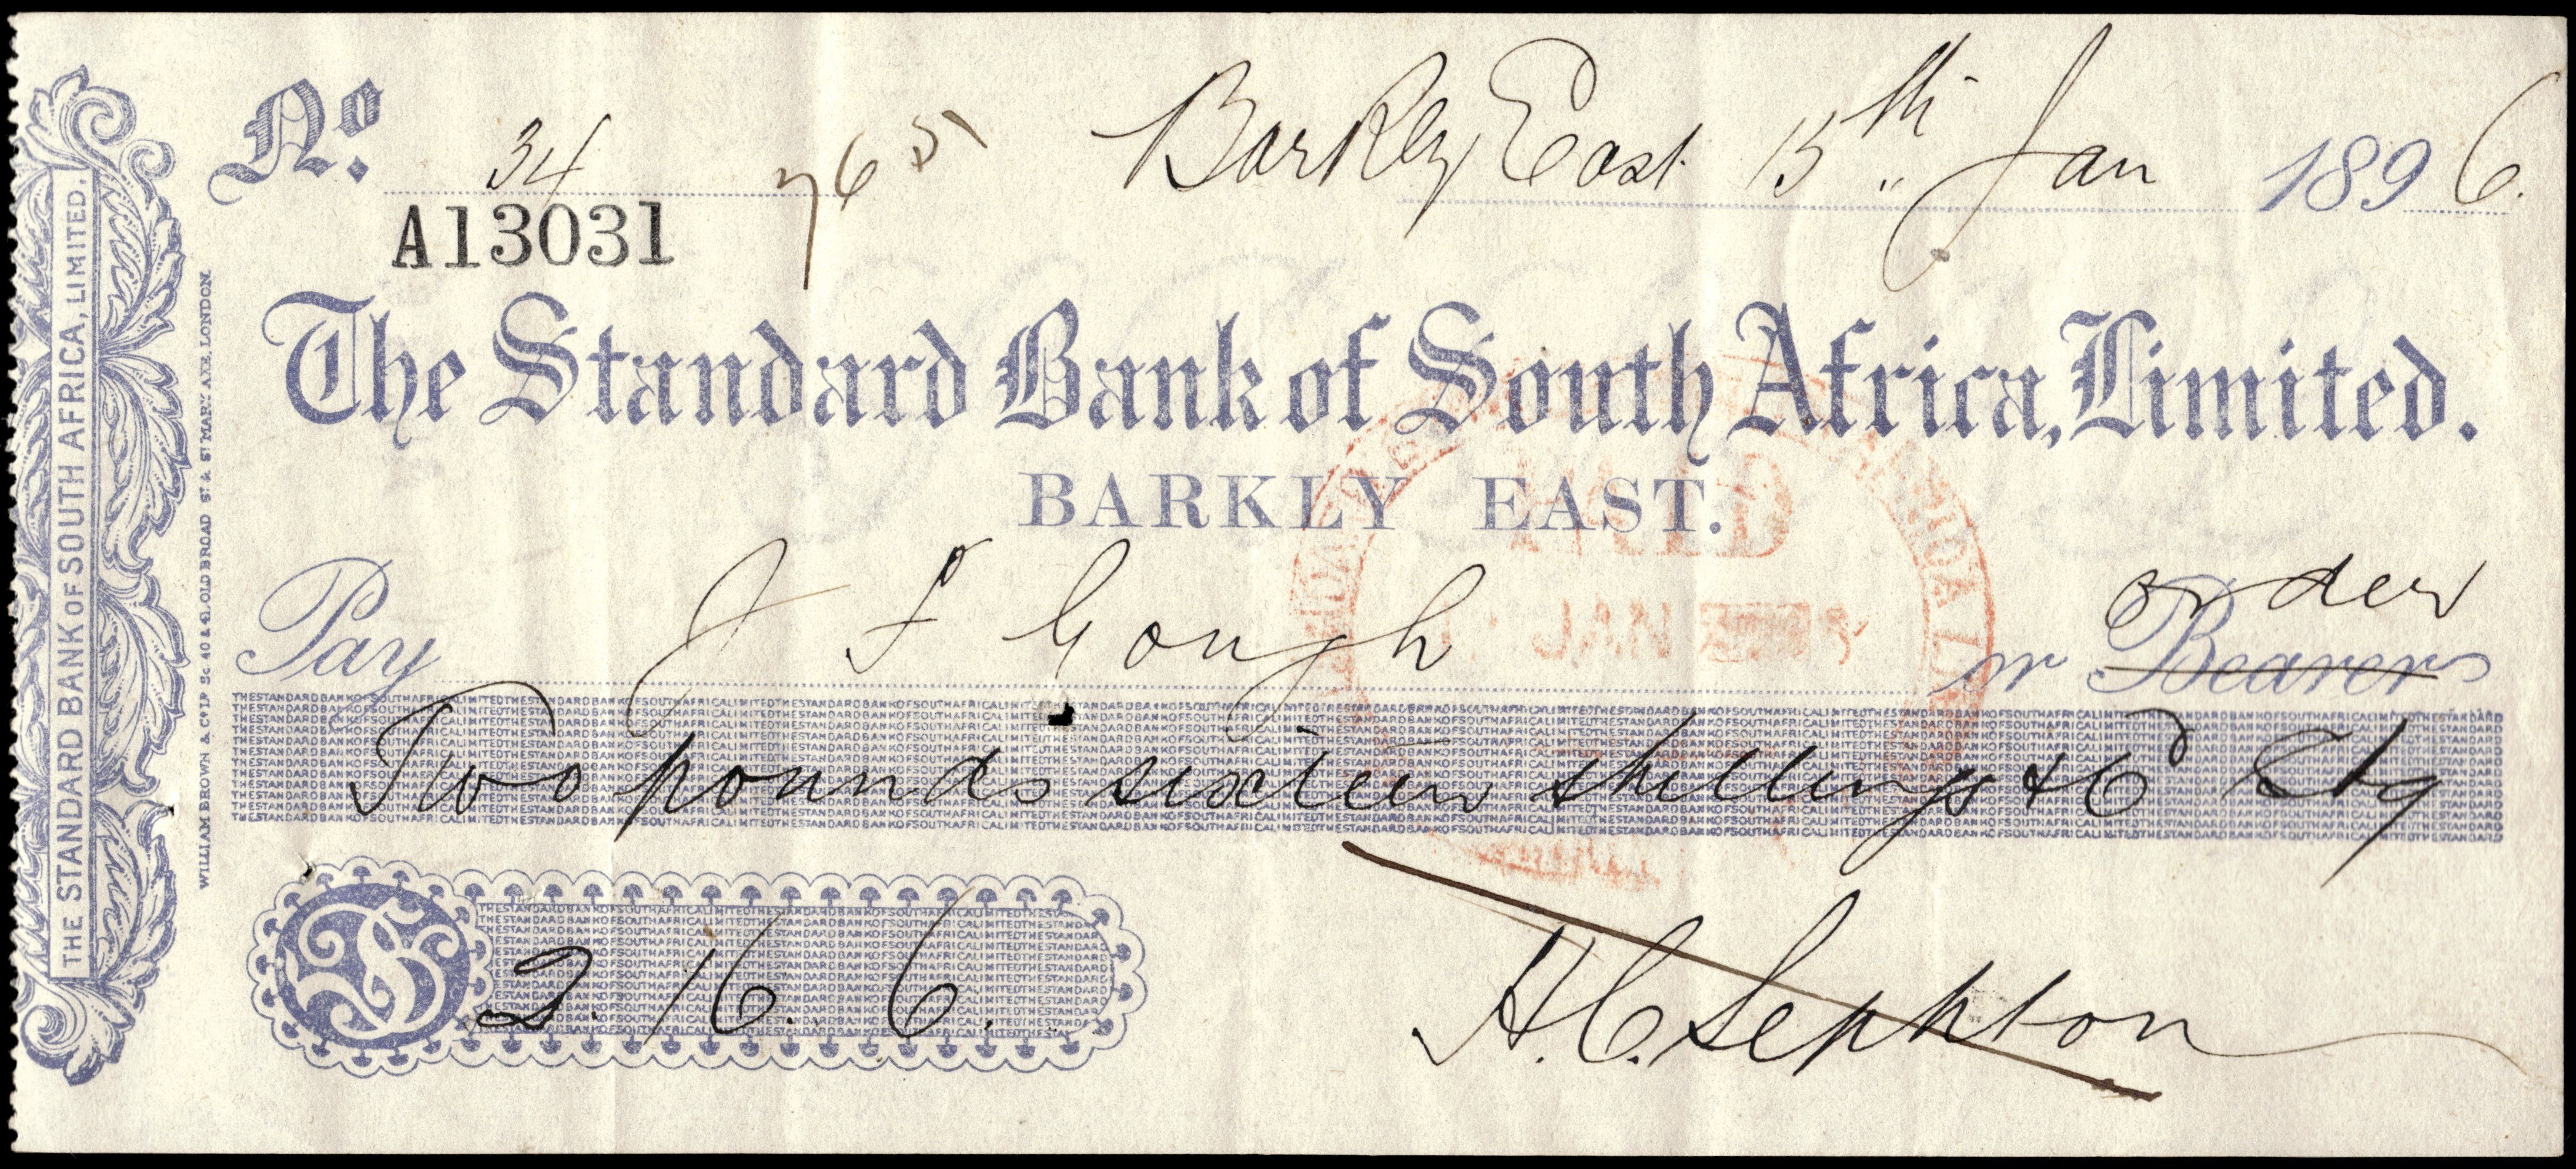 No. 34 7651 Barkly East 15th Jan 1896.
A13031
The Standard Bank of South Africa, Limited.
BARKLY EAST.
PAID
JAN
order
Pay J F Gough or Bearer
Two pounds sixteen shillings & 6d Stg
2. 16. 6.
H.C. Sephton
THE STANDARD BANK OF SOUTH AFRICA, LIMITED.
WILLIAM BROWN & Co Ld Sc 40 & 41, OLD BROAD St & St MARY AXE, LONDON.